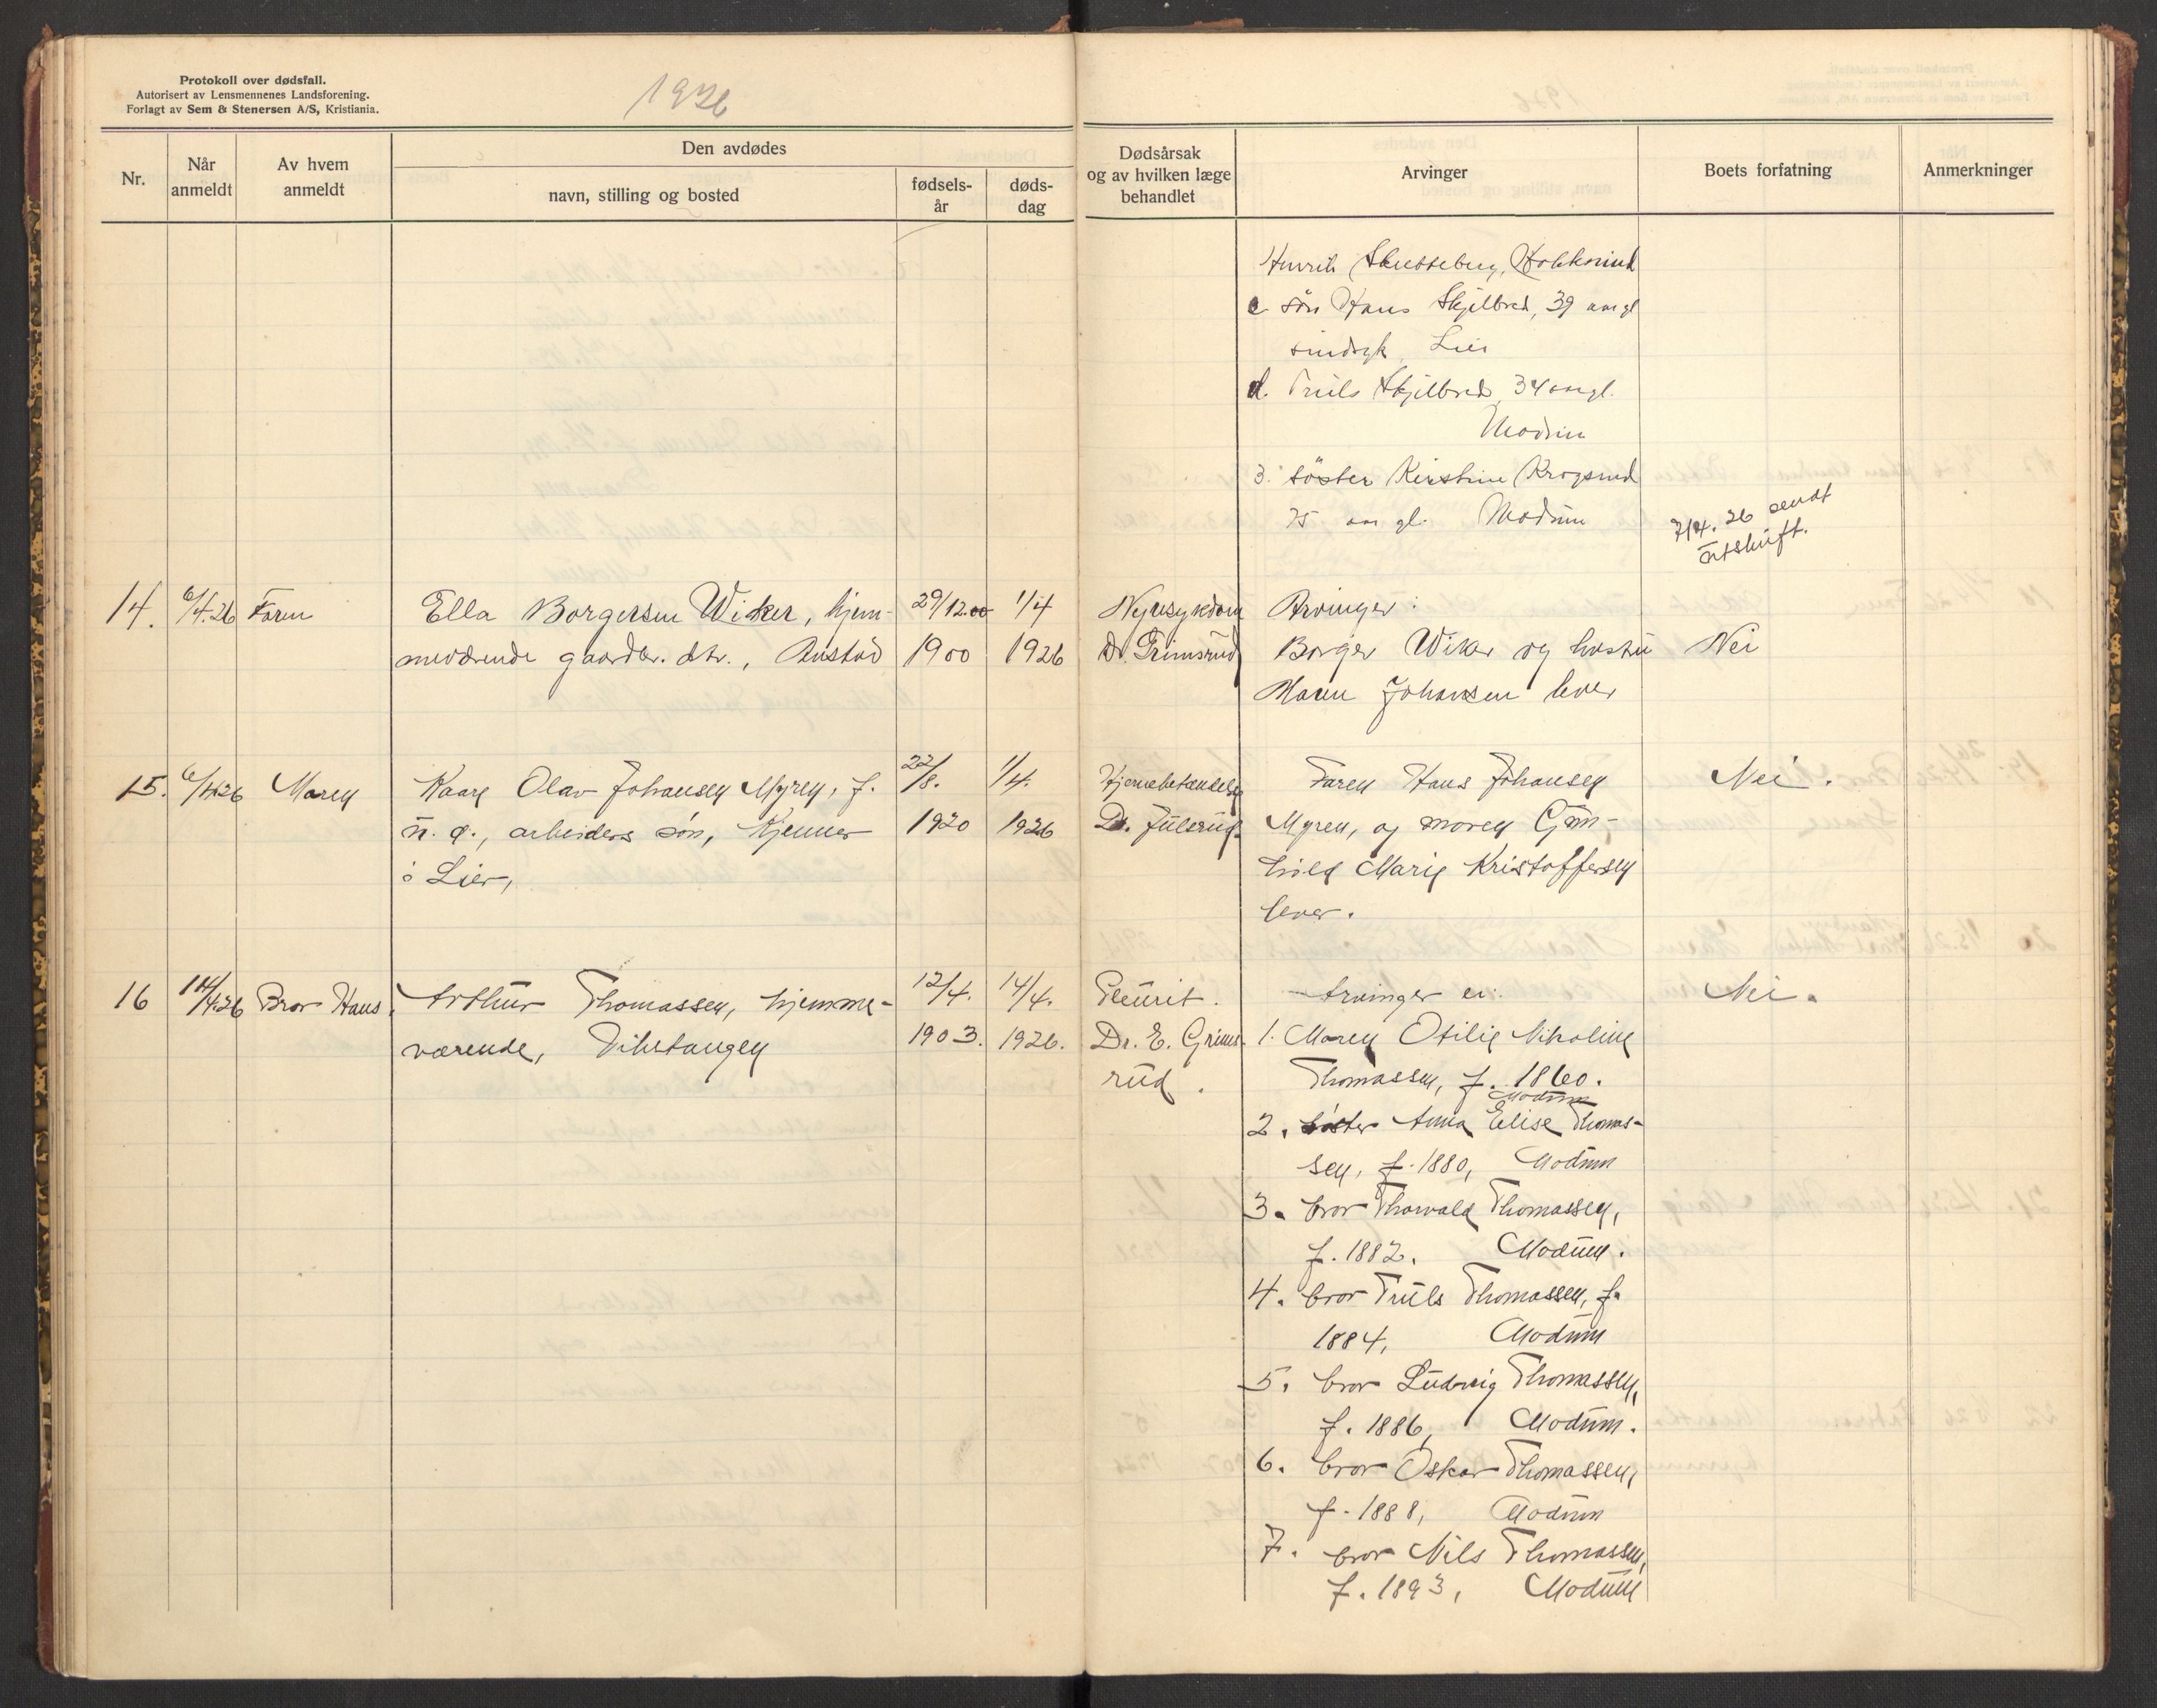 Protokoll over dødsfall.
Autorisert av Lensmennenes Landsforening.
Forlagt av Sem & Stenersen A/S, Kristiania.
1926
Nr.
Når anmeldt
Av hvem anmeldt
Den avdødes
navn, stilling og bosted
fødsels-år
døds-dag
Dødsårsak og av hvilken læge behandlet
Arvinger
Boets forfatning
Anmerkninger
c søn Hans Skjelbred, 39 aar gl
sindsyk, Lier
d. Truls Skjelbred, 34 aar gl.
Modum
3. söster Kirstine Krogsrud
75 aar gl. Modum
7/4. 26 sendt
utskrift.
14. 6/4.26 Faren Ella Borgersen Wiker, hjem- 29/12.00 1/4 Nyresykdom Arvinger:
meværende gaardbr. dtr., 1900 1926 Dr. Grimsrud Borger Wiker og hustru Nei
Maren Johansen lever
15. 6/4.26 Moren Kaare Olav Johansen Myren, f. 22/8. 1/4. Hjernebetændelse Faren Hans Johansen Nei.
u. e., arbeiders søn, Kjenner 1920 1926 Dr. Julsrud. Myren, og moren Gun-
i Lier, hild Marie Kristoffersen
lever.
16 14/4.26 Bror Hans Arthur Thomassen, hjemme- 12/4. 14/4. Pleurit. Arvinger er: Nei.
værende, Vikstangen 1903. 1926. Dr. E. Grims- 1. Moren Otilie Nikoline
rud. Thomassen, f. 1860.
Modum
2. söster Anna Elise Thomas-
sen, f. 1880, Modum
3. bror Thorvald Thomassen,
f. 1882. Modum.
4. bror Truls Thomassen, f.
1884, Modum
5. bror Ludvig Thomassen,
f. 1886, Modum.
6. bror Oskar Thomassen,
f. 1888, Modum
7. bror Nils Thomassen,
f. 1893, Modum